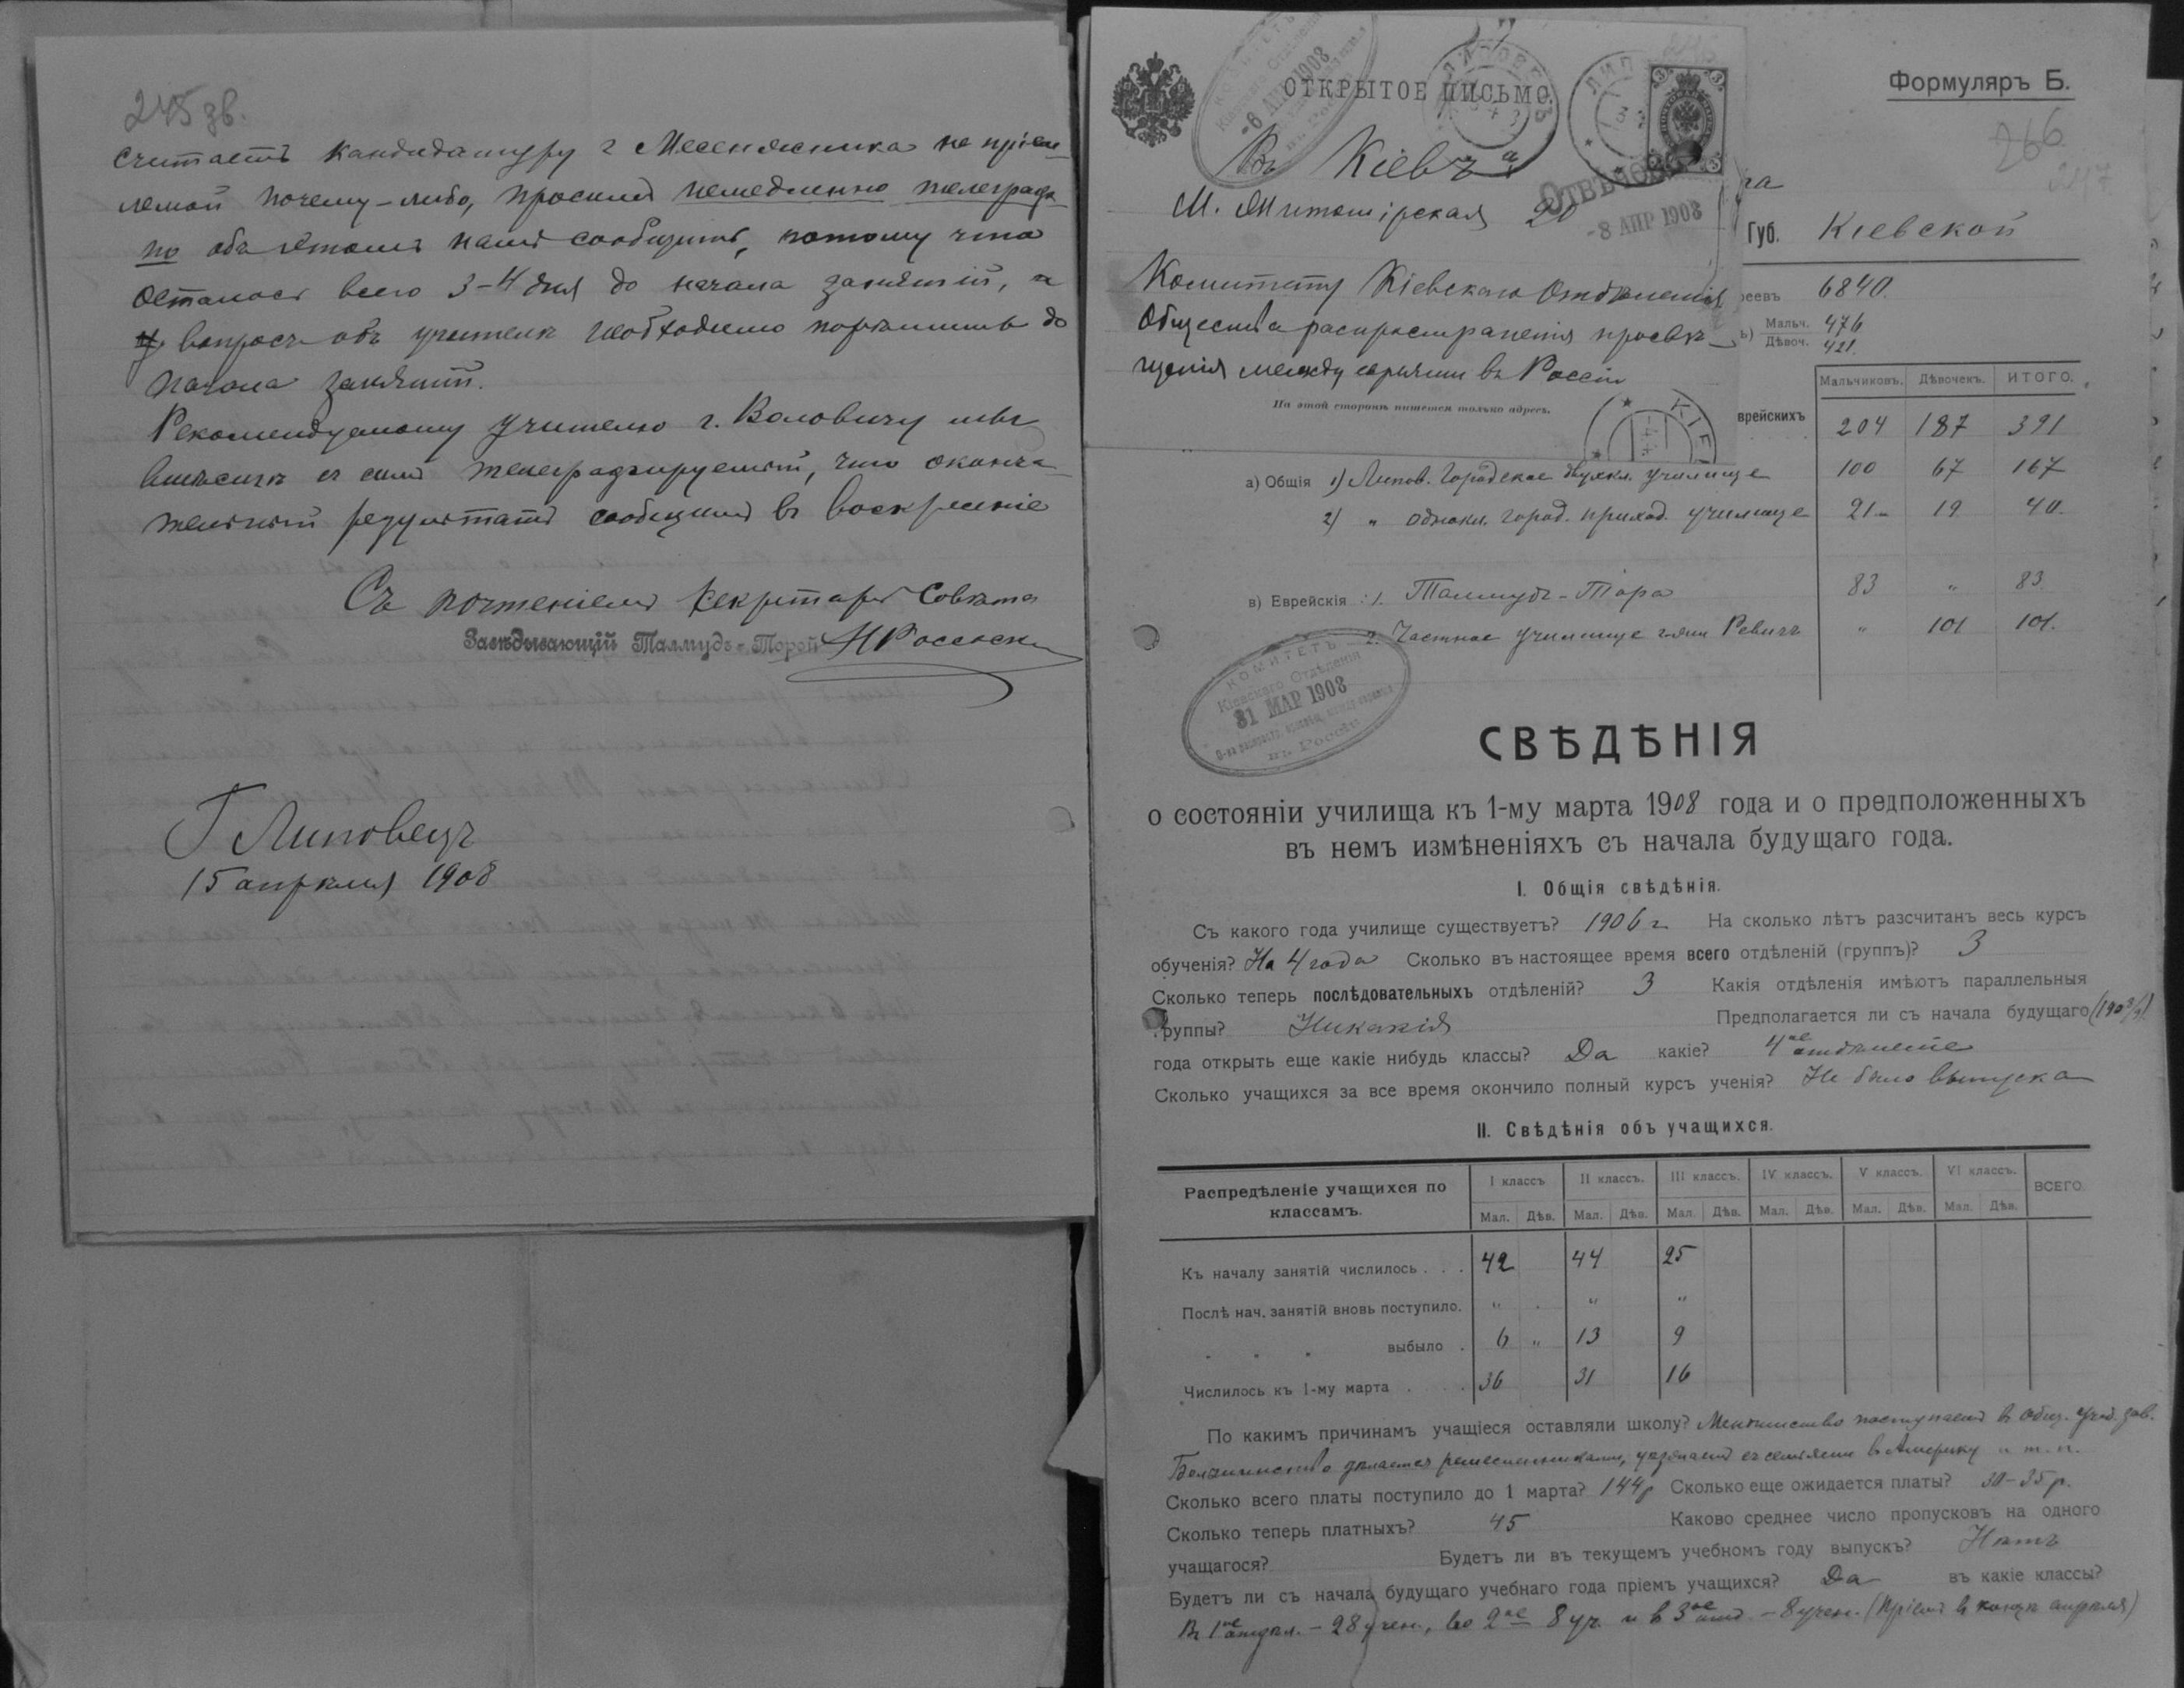 245 зв.
считаетъ кандидатуру г Месенжника не пріем-
лемой почему-либо, просимъ немедленно телеграф-
но объ этомъ намъ сообщить, потому что
осталось всего 3-4 дня до начала занятій, а
вопросъ объ учителѣ необходимо порѣшить до
начала занятій.
Рекомендуемому учителю г. Воловичу мы
вмѣстѣ съ симъ телеграфируемъ, что оконча-
тельный результатъ сообщимъ въ воскресеніе
Съ почтеніемъ Секретарь Совѣта
Завѣдывающій Талмудъ-Торой
Г Липовецъ
15 апрѣля 1908
ОТКРЫТОЕ ПИСЬМО.
КОМИТЕТЪ
-6 АПР 1908
Въ Кіевъ
М. Житомірская 20
ОТВѢЧЕНО
-8 АПР 1908
Комитету Кіевскаго Отдѣленія
Общества распространенія просвѣ-
щенія между евреями въ Россіи
На этой сторонѣ пишется только адресъ.
Формуляръ Б.
266
247
Губ. Кіевской
реевъ 6840.
Мальч. 476
Дѣвоч. 421.
Мальчиковъ. Дѣвочекъ. ИТОГО.
врейскихъ 204 187 391
а) Общія 1) Липов. Городское двухкл. училище 100 67 167
2) " однокл. город. приход. училище 21 19 40.
в) Еврейскія : 1. Талмудъ-Тора 83 " 83
2. Частное училище г-жи Ревичъ " 101 101.
КОМИТЕТЪ
Кіевскаго Отдѣленія
31 МАР 1908
въ Россіи
СВѢДѢНІЯ
о состояніи училища къ 1-му марта 1908 года и о предположенныхъ
въ немъ измѣненіяхъ съ начала будущаго года.
I. Общія свѣдѣнія.
Съ какого года училище существуетъ? 1906 г На сколько лѣтъ разсчитанъ весь курсъ
обученія? На 4 года Сколько въ настоящее время всего отдѣленій (группъ)? 3
Сколько теперь послѣдовательныхъ отдѣленій? 3 Какія отдѣленія имѣютъ параллельныя
группы? Никакія Предполагается ли съ начала будущаго (1908/9)
года открыть еще какіе нибудь классы? Да какіе? 4ое отдѣленіе
Сколько учащихся за все время окончило полный курсъ ученія? Не было выпуска
II. Свѣдѣнія объ учащихся.
Распредѣленіе учащихся по классамъ. I классъ II классъ. III классъ. IV классъ. V классъ. VI классъ. ВСЕГО.
Мал. Дѣв. Мал. Дѣв. Мал. Дѣв. Мал. Дѣв. Мал. Дѣв. Мал. Дѣв.
Къ началу занятій числилось . . . 42 44 25
Послѣ нач. занятій вновь поступило. " " "
" " " выбыло . 6 " 13 9
Числилось къ 1-му марта . . . 36 31 16
По какимъ причинамъ учащіеся оставляли школу? Меньшинство поступаетъ въ общ. учеб. зав.
Большинство дѣлается ремесленниками, уѣзжаетъ съ семьями въ Америку и т. п.
Сколько всего платы поступило до 1 марта? 144 р Сколько еще ожидается платы? 30-35 р.
Сколько теперь платныхъ? 45 Каково среднее число пропусковъ на одного
учащагося? Будетъ ли въ текущемъ учебномъ году выпускъ? Нѣтъ
Будетъ ли съ начала будущаго учебнаго года пріемъ учащихся? Да въ какіе классы?
Въ 1ое отдѣл. - 28 учен., во 2ое 8 уч. и въ 3ое отд - 8 учен. (Пріемъ въ концѣ апрѣля)